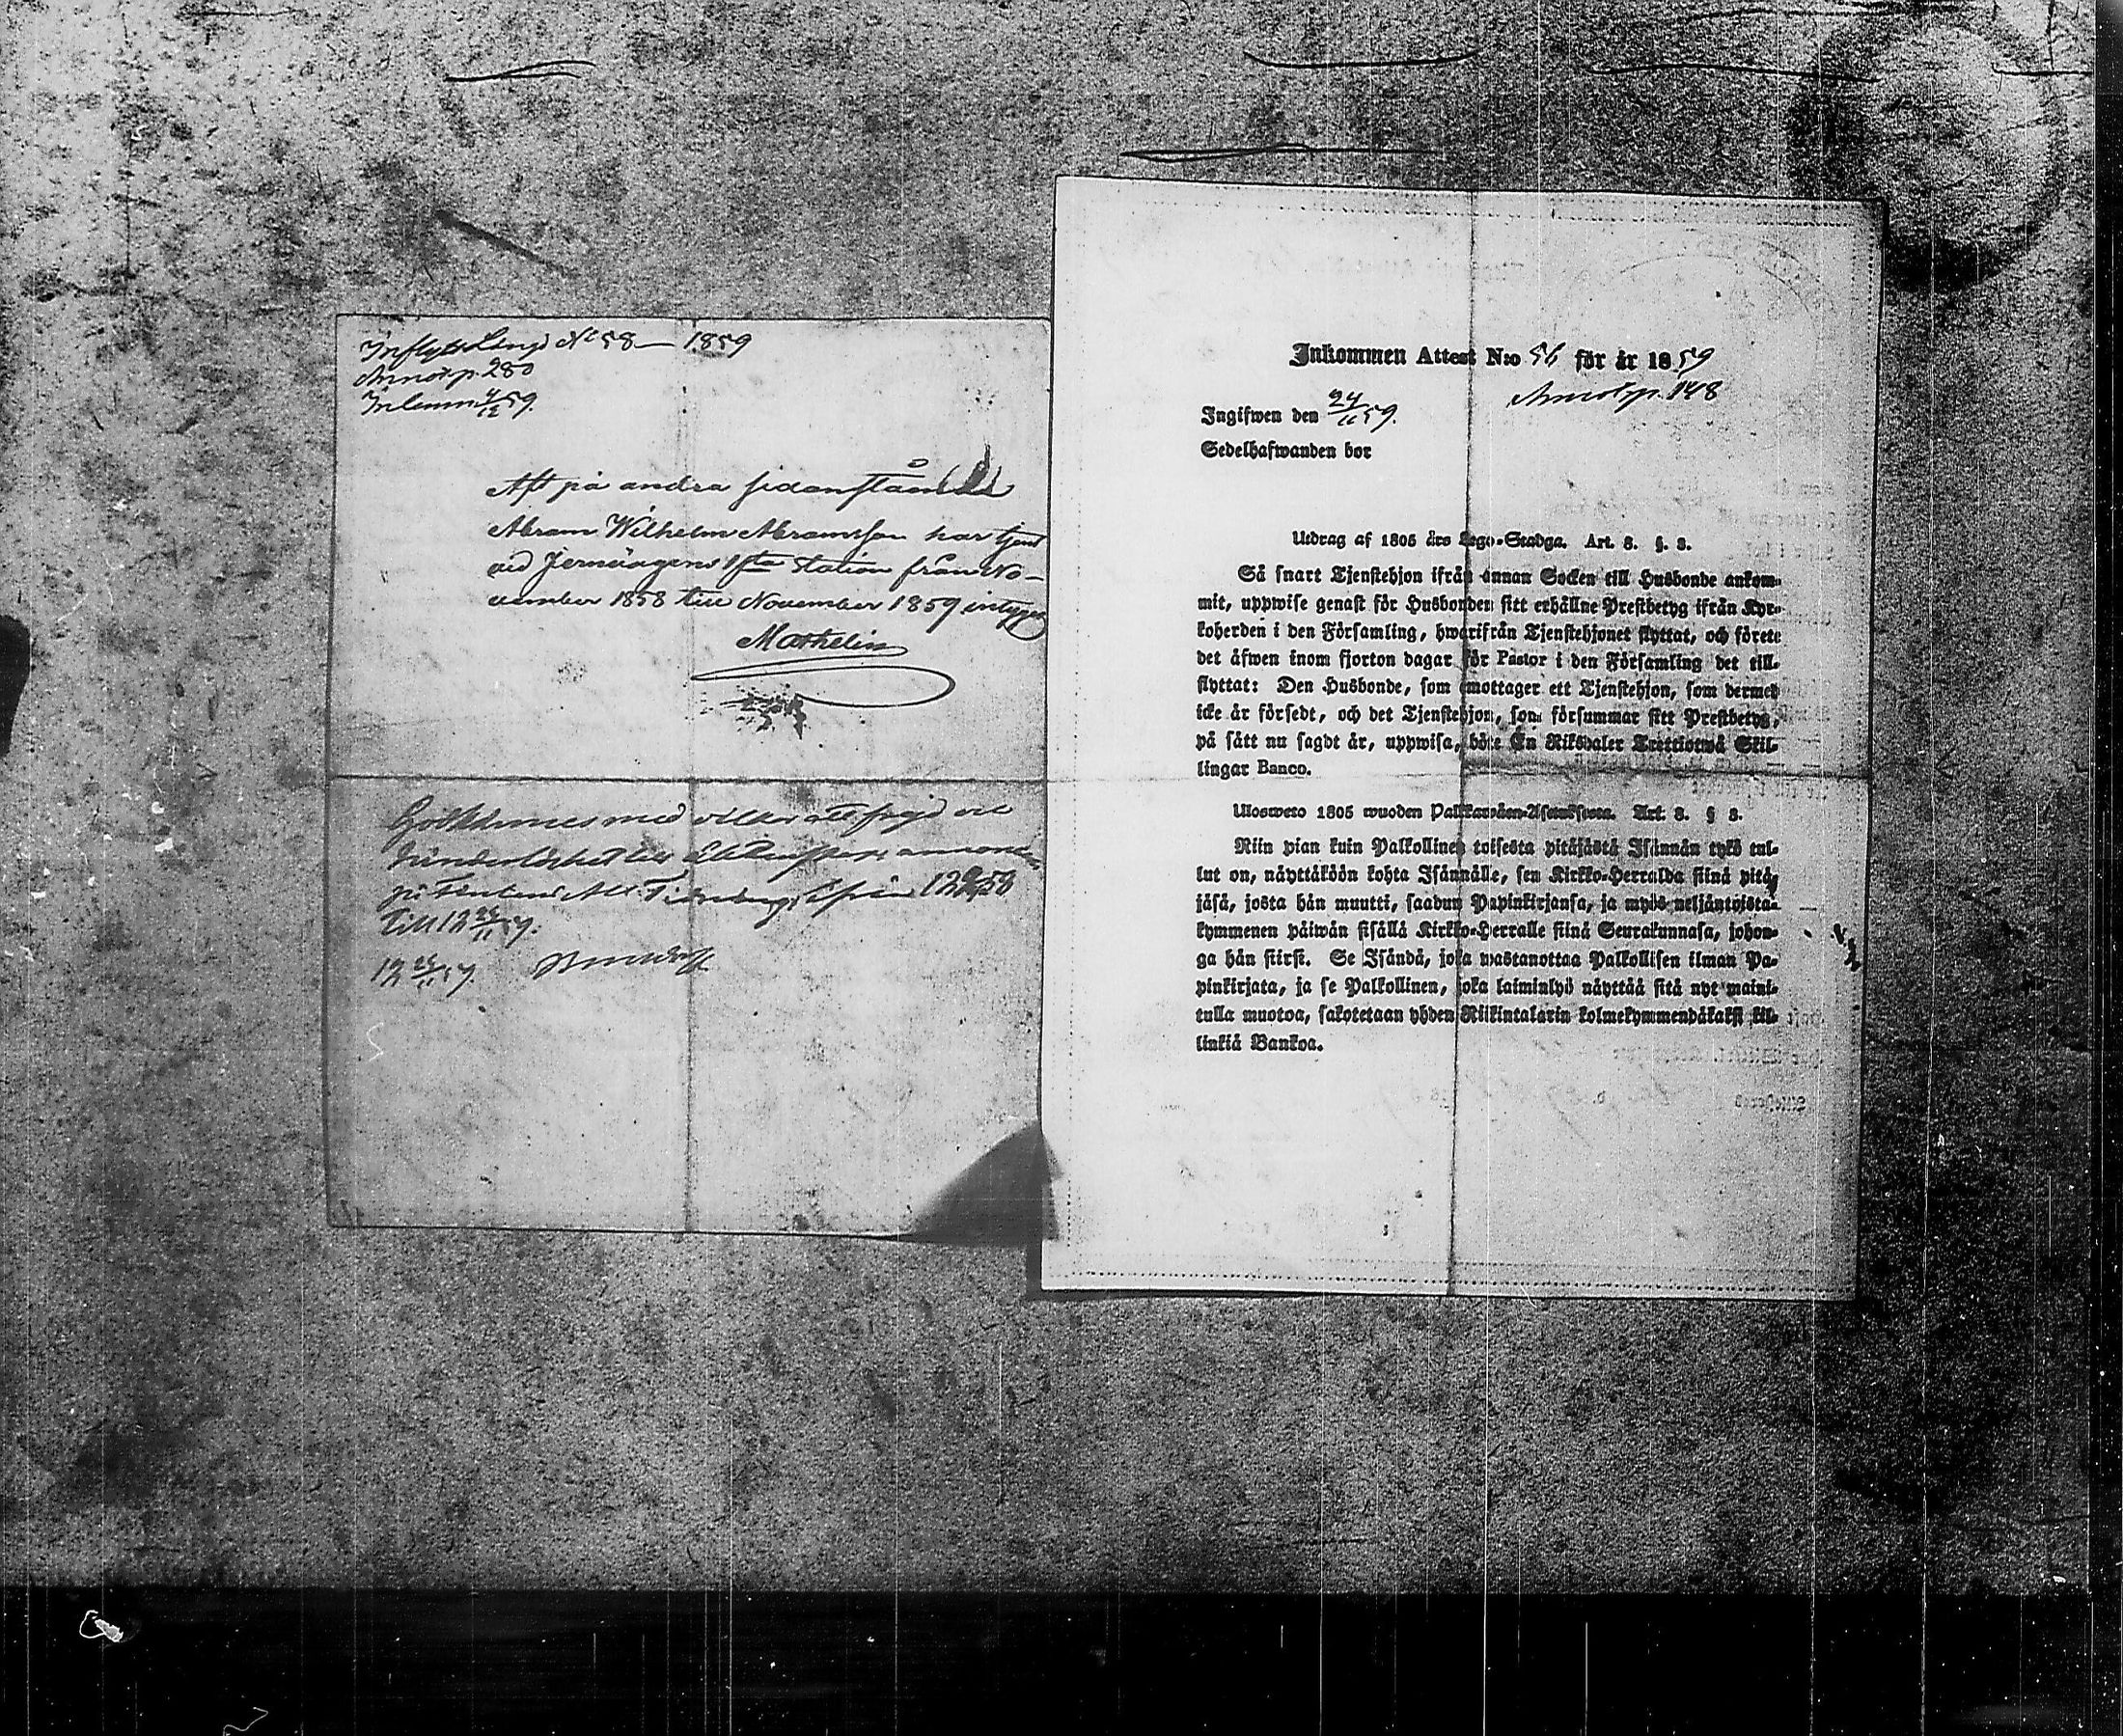 Inflytt Längd No 58 — 1859
Annot p. 280
Inlemn 4/12 59.
Att på andra sidan stående
Abram Wilhelm Abramsson har tjent
vid Jernvägens 1sta Station från No-
vember 1858 till November 1859 intygar
Mathelin
Godkännes med villkor att frejd och
till 12 24/11 59.
12 24/11 59.
Inkommen Attest N:o 56 för år 1859
Annot p. 148
Ingifwen den 24/11 59.
Sedelhafwanden bor
Utdrag af 1805 års Lego-Stadga. Art. 8. §. 3.
Så snart Tjenstehjon ifrån annan Socken till Husbonde ankom-
mit, uppwise genast för Husbonden sitt erhållne Prestbetyg ifrån Kyr-
koherden i den Församling, hwarifrån Tjenstehjonet flyttat, och förete
det äfwen inom fjorton dagar för Pastor i den Församling det till-
flyttat: Den Husbonde, som emottager ett Tjenstehjon, som dermed
icke är försedt, och det Tjenstehjon, som försummar sitt Prestbetyg,
på sätt nu sagdt är, uppwisa, böte En Riksdaler Trettiotwå Skil-
lingar Banco.
Ulosweto 1805 wuoden Palkkawäen-Asetuksesta. Art. 8. § 3.
Niin pian kuin Palkollinen toisesta pitäjästä Isännän tykö tul-
lut on, näyttäköön kohta Isännälle, sen Kirkko-Herralda siinä pitä-
jäsä, josta hän muutti, saadun Papinkirjansa, ja myös neljäntoista-
kymmenen päiwän sisällä Kirkko-Herralle siinä Seurakunnasa, johon-
ga hän siirsi. Se Isändä, joka wastanottaa Palkollisen ilman Pa-
pinkirjata, ja se Palkollinen, joka laiminlyö näyttää sitä nyt maini-
tulla muotoa, sakotetaan yhden Riikintalarin kolmekymmendäkaksi kil-
linkiä Bankoa.